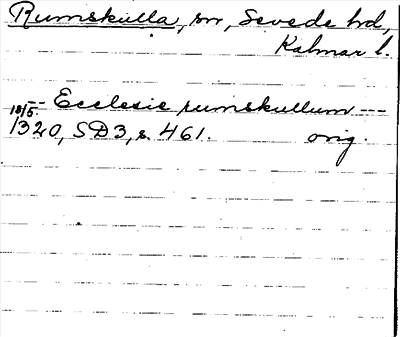 Rumskulla, sn, Sevede hd,
Kalmar l.
-- Ecclesie rumskullum ---
18/5.
1320, SD3, s. 461. orig.